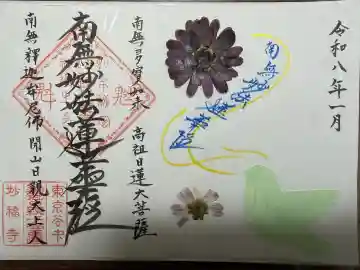 令和八年一月
南無妙法蓮華経
南無多寳如来 高祖日蓮大菩薩
南無妙法蓮華経
南無釋迦牟尼佛 開山日親大上人
妙福寺